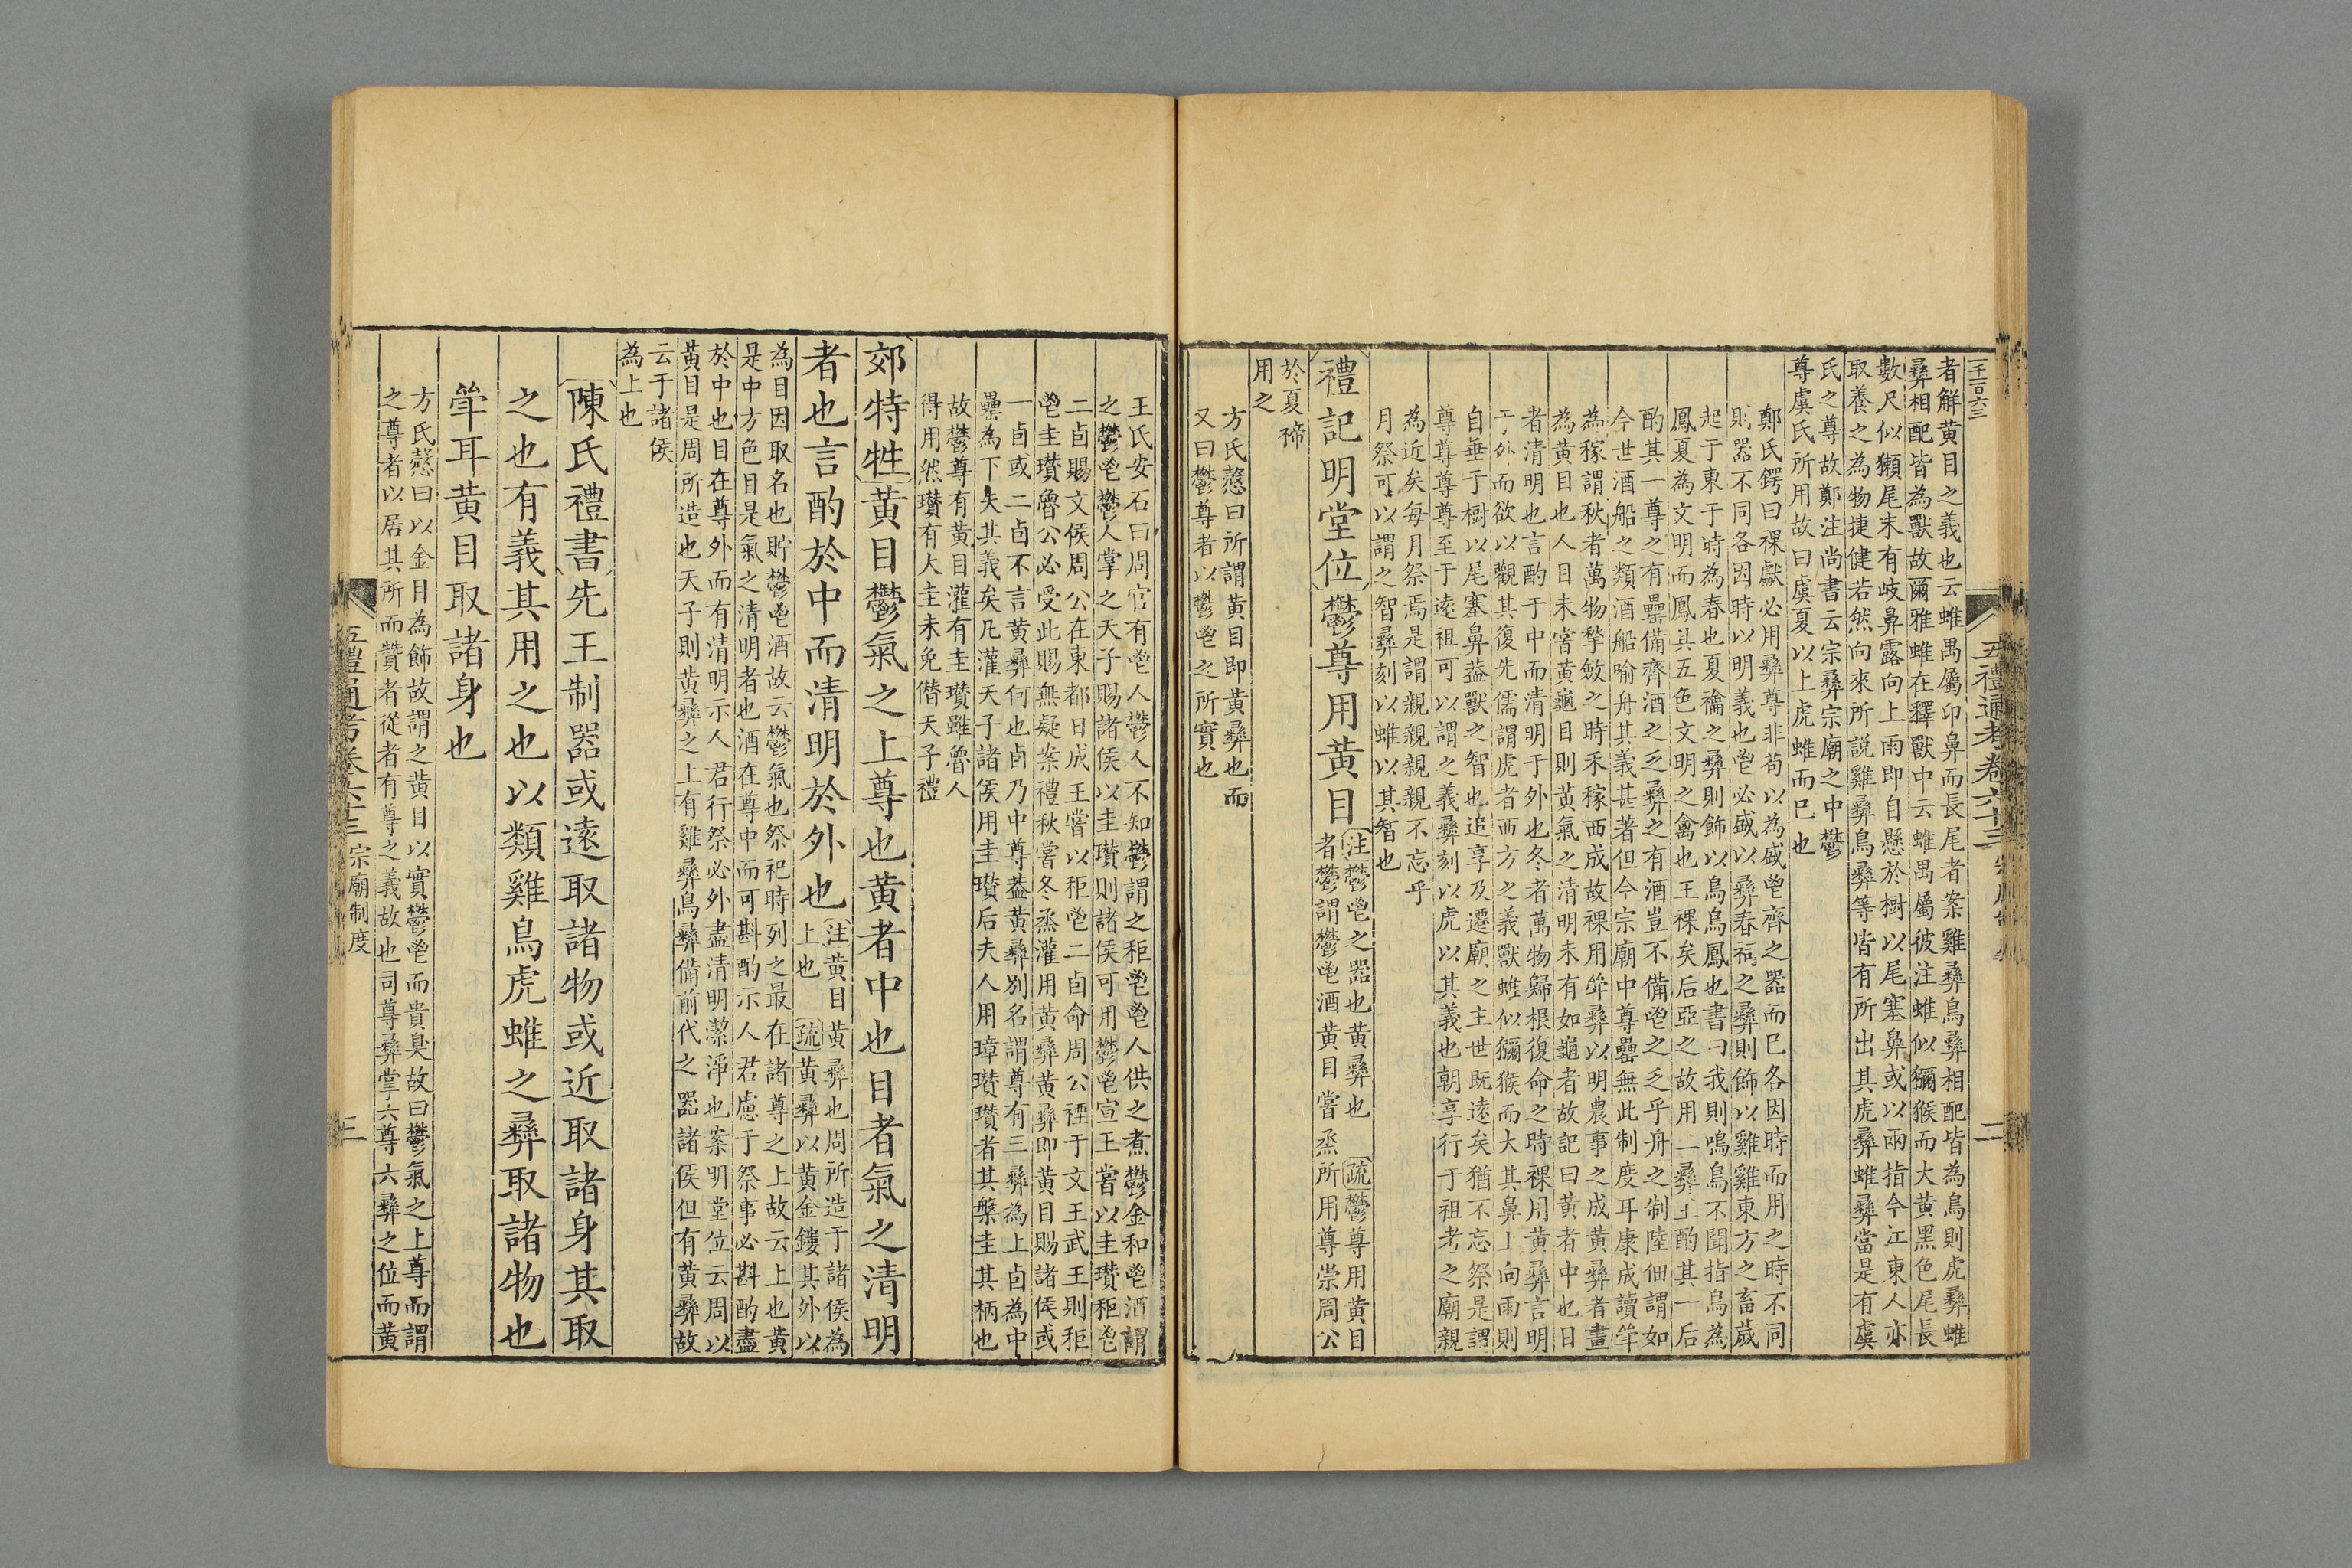 二千二百六三
者解黃目之義也云蜼禺屬卬鼻而長尾者案雞彝鳥彝相配皆為鳥則虎彝蜼
彝相配皆為獸故爾雅蜼在釋獸中云蜼禺屬彼注蜼似獼猴而大黃黑色尾長
數尺似獺尾末有岐鼻露向上雨即自懸於樹以尾塞鼻或以兩指今江東人亦
取養之為物捷健若然向來所説雞彝鳥彝等皆有所出其虎彝蜼彝當是有虞
氏之尊故鄭注尚書云宗彝宗廟之中鬱
尊虞氏所用故曰虞夏以上虎蜼而已也
鄭氏鍔曰祼獻必用彝尊非苟以為盛鬯齊之器而已各因時而用之時不同
則器不同各因時以明義也鬯必盛以彝春祠之彝則飾以雞雞東方之畜歲
起于東于時為春也夏禴之彝則飾以鳥鳥鳳也書曰我則鳴鳥不聞指鳥為
鳳夏為文明而鳳具五色文明之禽也王祼矣后亞之故用二彝王酌其一后
酌其一尊之有罍備齊酒之乏彝之有酒豈不備鬯之乏乎舟之制陸佃謂如
今世酒船之類酒船喻舟其義甚著但今宗廟中尊罍無此制度耳康成讀斝
為稼謂秋者萬物揫斂之時禾稼西成故祼用斝彝以明農事之成黃彝者畫
為黃目也人目未嘗黃龜目則黃氣之清明未有如龜者故記曰黃者中也目
者清明也言酌于中而清明于外也冬者萬物歸根復命之時祼用黃彝言明
于外而欲以觀其復先儒謂虎者西方之義獸蜼似獼猴而大其鼻上向雨則
自垂于樹以尾塞鼻葢獸之智也追享及遷廟之主世既逺矣猶不忘祭是謂
尊尊尊尊至于逺祖可以謂之義彝刻以虎以其義也朝享行于祖考之廟親
為近矣每月祭焉是謂親親親親不忘乎
月祭可以謂之智彝刻以蜼以其智也
禮記明堂位鬱尊用黃目
注鬱鬯之器也黃彝也 疏鬱尊用黃目
者鬱謂鬱鬯酒黃目嘗烝所用尊崇周公
於夏禘
用之
方氏慤曰所謂黃目即黃彝也而
又曰鬱尊者以鬱鬯之所實也
五禮通考卷六十三
二
王氏安石曰周官有鬯人鬱人不知鬱謂之秬鬯鬯人供之煮鬱金和鬯酒謂
之鬱鬯鬱人掌之天子賜諸侯以圭瓚則諸侯可用鬱鬯宣王嘗以圭瓚秬鬯
二卣賜文侯周公在東都日成王嘗以秬鬯二卣命周公禋于文王武王則秬
鬯圭瓚魯公必受此賜無疑案禮秋嘗冬烝灌用黃彝黃彝即黃目賜諸侯或
一卣或二卣不言黃彝何也卣乃中尊葢黃彝别名謂尊有三彝為上卣為中
罍為下失其義矣凡灌天子諸侯用圭瓚后夫人用璋瓚瓚者其槃圭其柄也
故鬱尊有黃目灌有圭瓚雖魯人
得用然瓚有大圭未免僭天子禮
郊特牲黃目鬱氣之上尊也黃者中也目者氣之清明
者也言酌於中而清明於外也
注黃目黃彝也周所造于諸侯為
上也 疏黃彝以黃金鏤其外以
為目因取名也貯鬱鬯酒故云鬱氣也祭祀時列之最在諸尊之上故云上也黃
是中方色目是氣之清明者也酒在尊中而可斟酌示人君慮于祭事必斟酌盡
於中也目在尊外而有清明示人君行祭必外盡清明潔淨也案明堂位云周以
黃目是周所造也天子則黃彝之上有雞彝鳥彝備前代之器諸侯但有黃彝故
云于諸侯
為上也
陳氏禮書先王制器或逺取諸物或近取諸身其取
之也有義其用之也以類雞鳥虎蜼之彝取諸物也
斝耳黃目取諸身也
方氏慤曰以金目為飾故謂之黃目以實鬱鬯而貴臭故曰鬱氣之上尊而謂
之尊者以居其所而贊者從者有尊之義故也司尊彝掌六尊六彝之位而黃
五禮通考卷六十三 宗廟制度
三